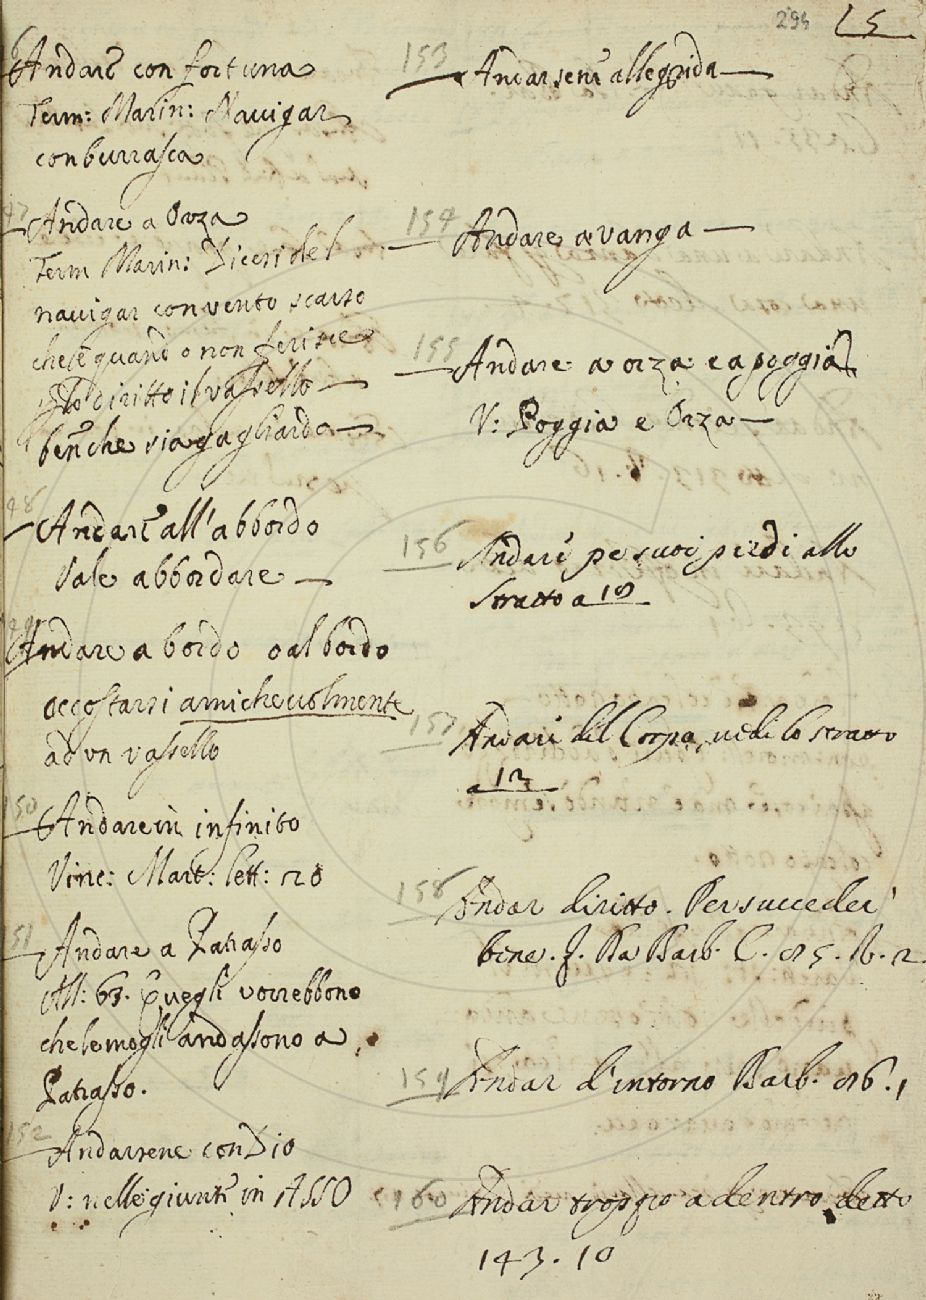 294 25
Andare con fortuna
Term: Marin: Nauigar
con burrasca
47
Andare a Orza
Term Marin: Dicesi del
nauigar con vento scarso
che è quando non ferisce
diritto il vassello
benche sia gagliardo
48
Andare all'abbordo
Vale abbordare
49
Andare a bordo o al bordo
accostarsi amicheuolmente
ad un vassello
150
Andare in infinito
Vinc: Mart: lett: 28
151
Andare a Patrasso
All: 63. Quegli vorrebbono
che le mogli andassono a
Patrasso.
152
Andarsene con Dio
V: nelle giunte in ASSO
153
Andarsene alle grida
154
Andare a vanga
155
Andare a orza e a poggia
V: Poggia e Orza
156
Andare pe suoi piedi allo
stratto a 18
157
Andare del Corpo, uedi lo stratto
a 12
158
Andar diritto. Per succeder
bene. F. Da Barb. C. 85. N. 2.
159
Andar d'intorno Barb. 86. 1
160
Andar troppo a dentro detto
143. 10